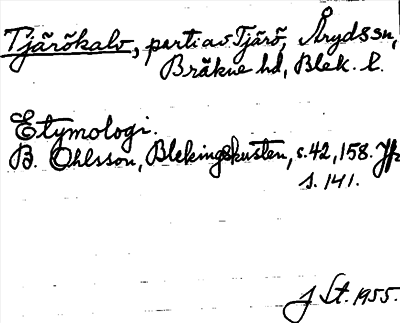 Tjärökalv, parti av Tjärö, Åryds sn,
Bräkne hd, Blek. l.
Etymologi.
B. Ohlsson, Blekingskusten, s. 42, 158. Jfr
s. 141.
J St. 1955.